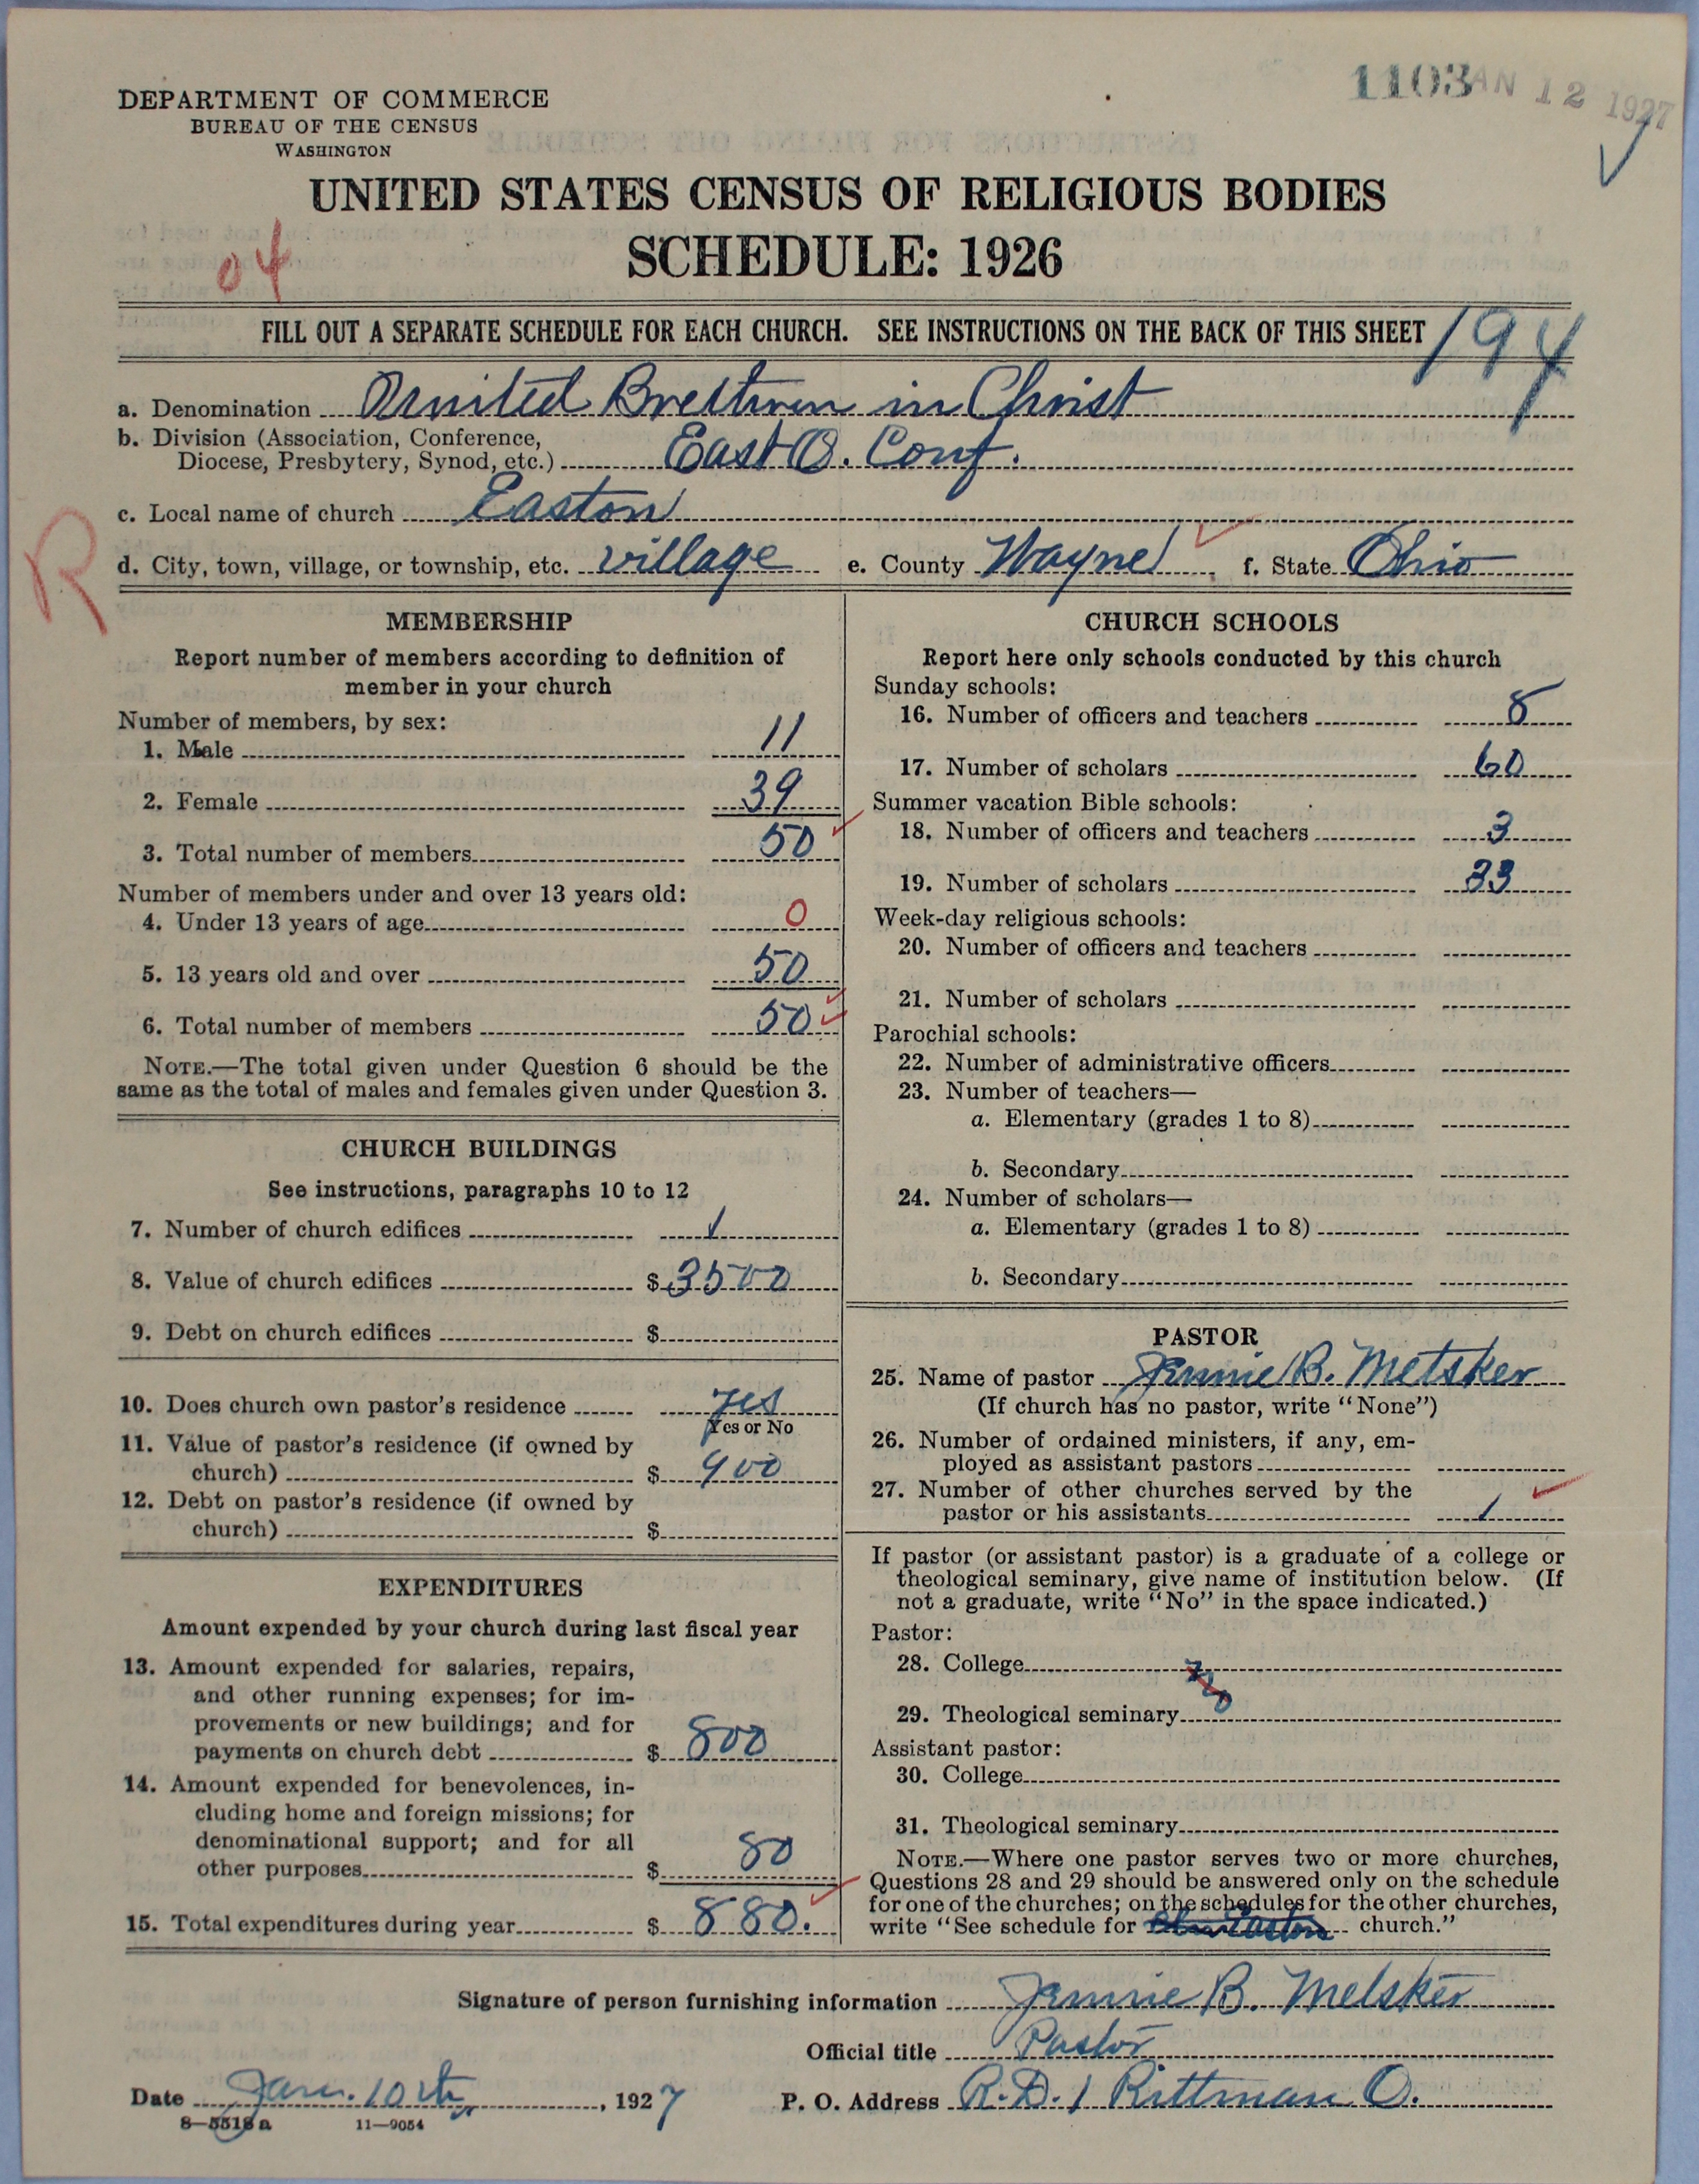 1103
JAN 12 1927
DEPARTMENT OF COMMERCE
BUREAU OF THE CENSUS
WASHINGTON
UNITED STATES CENSUS OF RELIGIOUS BODIES
SCHEDULE: 1926
04
FILL OUT A SEPARATE SCHEDULE FOR EACH CHURCH. SEE INSTRUCTIONS ON THE BACK OF THIS SHEET
194
a. Denomination United Brethren in Christ
b. Division (Association, Conference,
Diocese, Presbytery, Synod, etc.) East O. Conf.
c. Local name of church Easton
R
d. City, town, village, or township, etc. village e. County Wayne f. State Ohio
MEMBERSHIP
Report number of members according to definition of
member in your church
Number of members, by sex:
1. Male 11
2. Female 39
3. Total number of members 50
Number of members under and over 13 years old:
4. Under 13 years of age 0
5. 13 years old and over 50
6. Total number of members 50
NOTE.—The total given under Question 6 should be the
same as the total of males and females given under Question 3.
CHURCH BUILDINGS
See instructions, paragraphs 10 to 12
7. Number of church edifices 1
8. Value of church edifices $ 3500
9. Debt on church edifices $
10. Does church own pastor's residence yes
Yes or No
11. Value of pastor's residence (if owned by
church) $ 900
12. Debt on pastor's residence (if owned by
church) $
EXPENDITURES
Amount expended by your church during last fiscal year
13. Amount expended for salaries, repairs,
and other running expenses; for im-
provements or new buildings; and for
payments on church debt $ 800
14. Amount expended for benevolences, in-
cluding home and foreign missions; for
denominational support; and for all
other purposes $ 80
15. Total expenditures during year $ 880.
CHURCH SCHOOLS
Report here only schools conducted by this church
Sunday schools:
16. Number of officers and teachers 8
17. Number of scholars 60
Summer vacation Bible schools:
18. Number of officers and teachers 3
19. Number of scholars 33
Week-day religious schools:
20. Number of officers and teachers
21. Number of scholars
Parochial schools:
22. Number of administrative officers
23. Number of teachers—
a. Elementary (grades 1 to 8)
b. Secondary
24. Number of scholars—
a. Elementary (grades 1 to 8)
b. Secondary
PASTOR
25. Name of pastor Jennie B. Metsker
(If church has no pastor, write "None")
26. Number of ordained ministers, if any, em-
ployed as assistant pastors
27. Number of other churches served by the
pastor or his assistants 1
If pastor (or assistant pastor) is a graduate of a college or
theological seminary, give name of institution below. (If
not a graduate, write "No" in the space indicated.)
Pastor:
28. College
29. Theological seminary
Assistant pastor:
30. College
31. Theological seminary
NOTE.—Where one pastor serves two or more churches,
Questions 28 and 29 should be answered only on the schedule
for one of the churches; on the schedules for the other churches,
write "See schedule for Easton church."
Signature of person furnishing information Jennie B. Metsker
Official title Pastor
Date Jan. 10th, 1927 P. O. Address R.D. 1 Rittman O.
8—5518a 11—9054